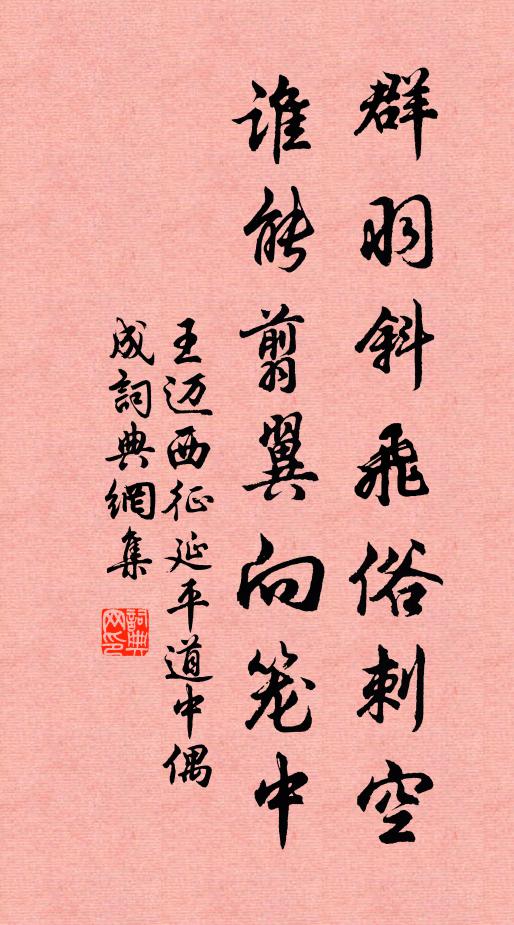 群羽斜飛俗刺空
誰能翦翼向笼中
王迈西征延平道中偶
成詞典網集
詞典網印